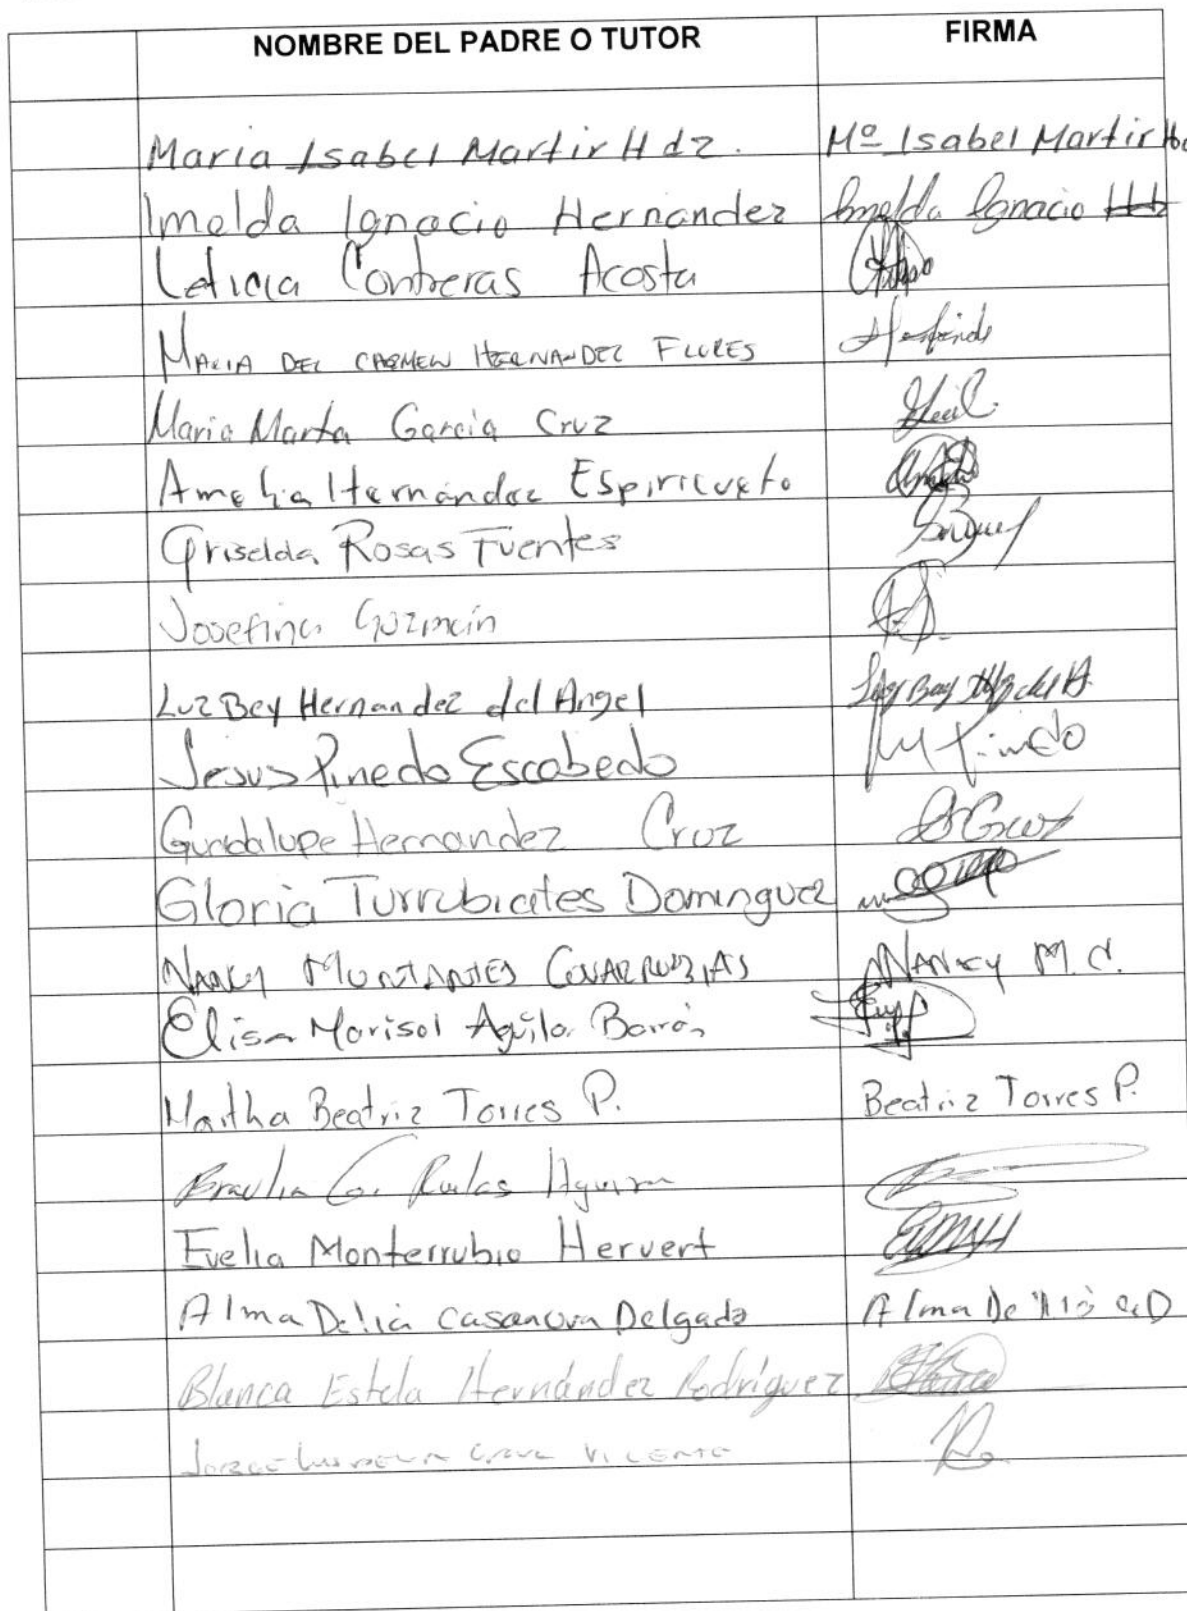 NOMBRE DEL PADRE O TUTOR FIRMA
Maria Isabel Martir Hdz. Mª Isabel Martir
Imelda Ignacio Hernandez Imelda Ignacio
Leticia Contreras Acosta
MARIA DEL CARMEN HERNANDEZ FLORES
Maria Marta Garcia Cruz
Amelia Hernández Espiricueto
Griselda Rosas Fuentes
Josefina Guzmán
Luz Bey Hernandez del Angel Luz Bey
Jesus Pinedo Escobedo Pinedo
Guadalupe Hernandez Cruz
Gloria Turrubiates Dominguez
NANCY MONTANTES COVARRUBIAS NANCY M. C.
Elisa Marisol Aguilar Barrón
Martha Beatriz Torres P. Beatriz Torres P.
Braulia G. Ruelas Aguirre
Evelia Monterrubio Hervert
Alma Delia Casanova Delgado Alma Delia
Blanca Estela Hernández Rodríguez
JORGE LUIS CRUZ VICENTE